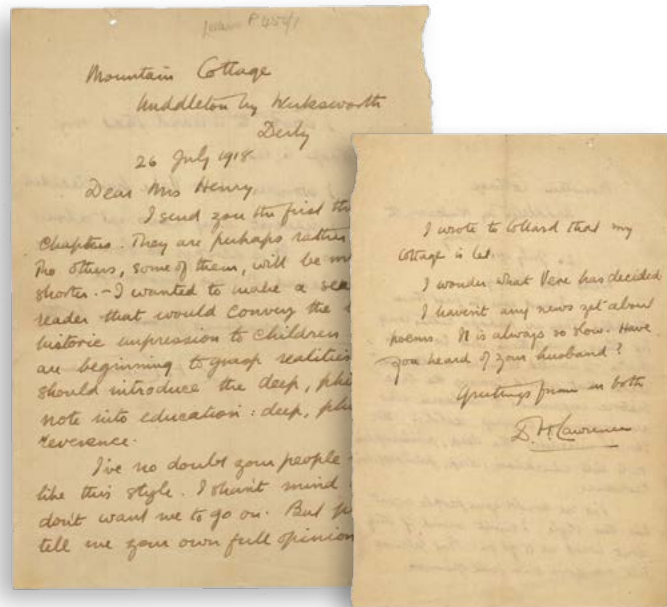 P 454/1
Mountain Cottage
Middleton by Wirksworth
Derby
26 July 1918
Dear Mrs Henry,
I send you the first
chapters. They are perhaps rather
The others, some of them, will be
shorter. – I wanted to make a
reader that would convey the
historic impression to children
are beginning to grasp realities
should introduce the deep,
note into education: deep,
reverence.
I've no doubt your people
like this style. I shan't mind
don't want me to go on. But
tell me your own full opinion
I wrote to Collard that my
cottage is let.
I wonder what Vere has decided
I haven't any news yet about
poems. It is always so slow. Have
you heard of your husband?
Greetings from us both
D. H. Lawrence